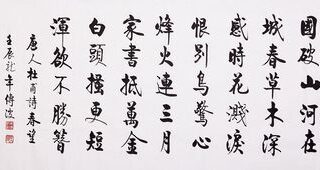 國破山河在
城春草木深
感時花濺淚
恨別鳥驚心
烽火連三月
家書抵萬金
白頭搔更短
渾欲不勝簪
唐人杜甫詩春望
壬辰龍年